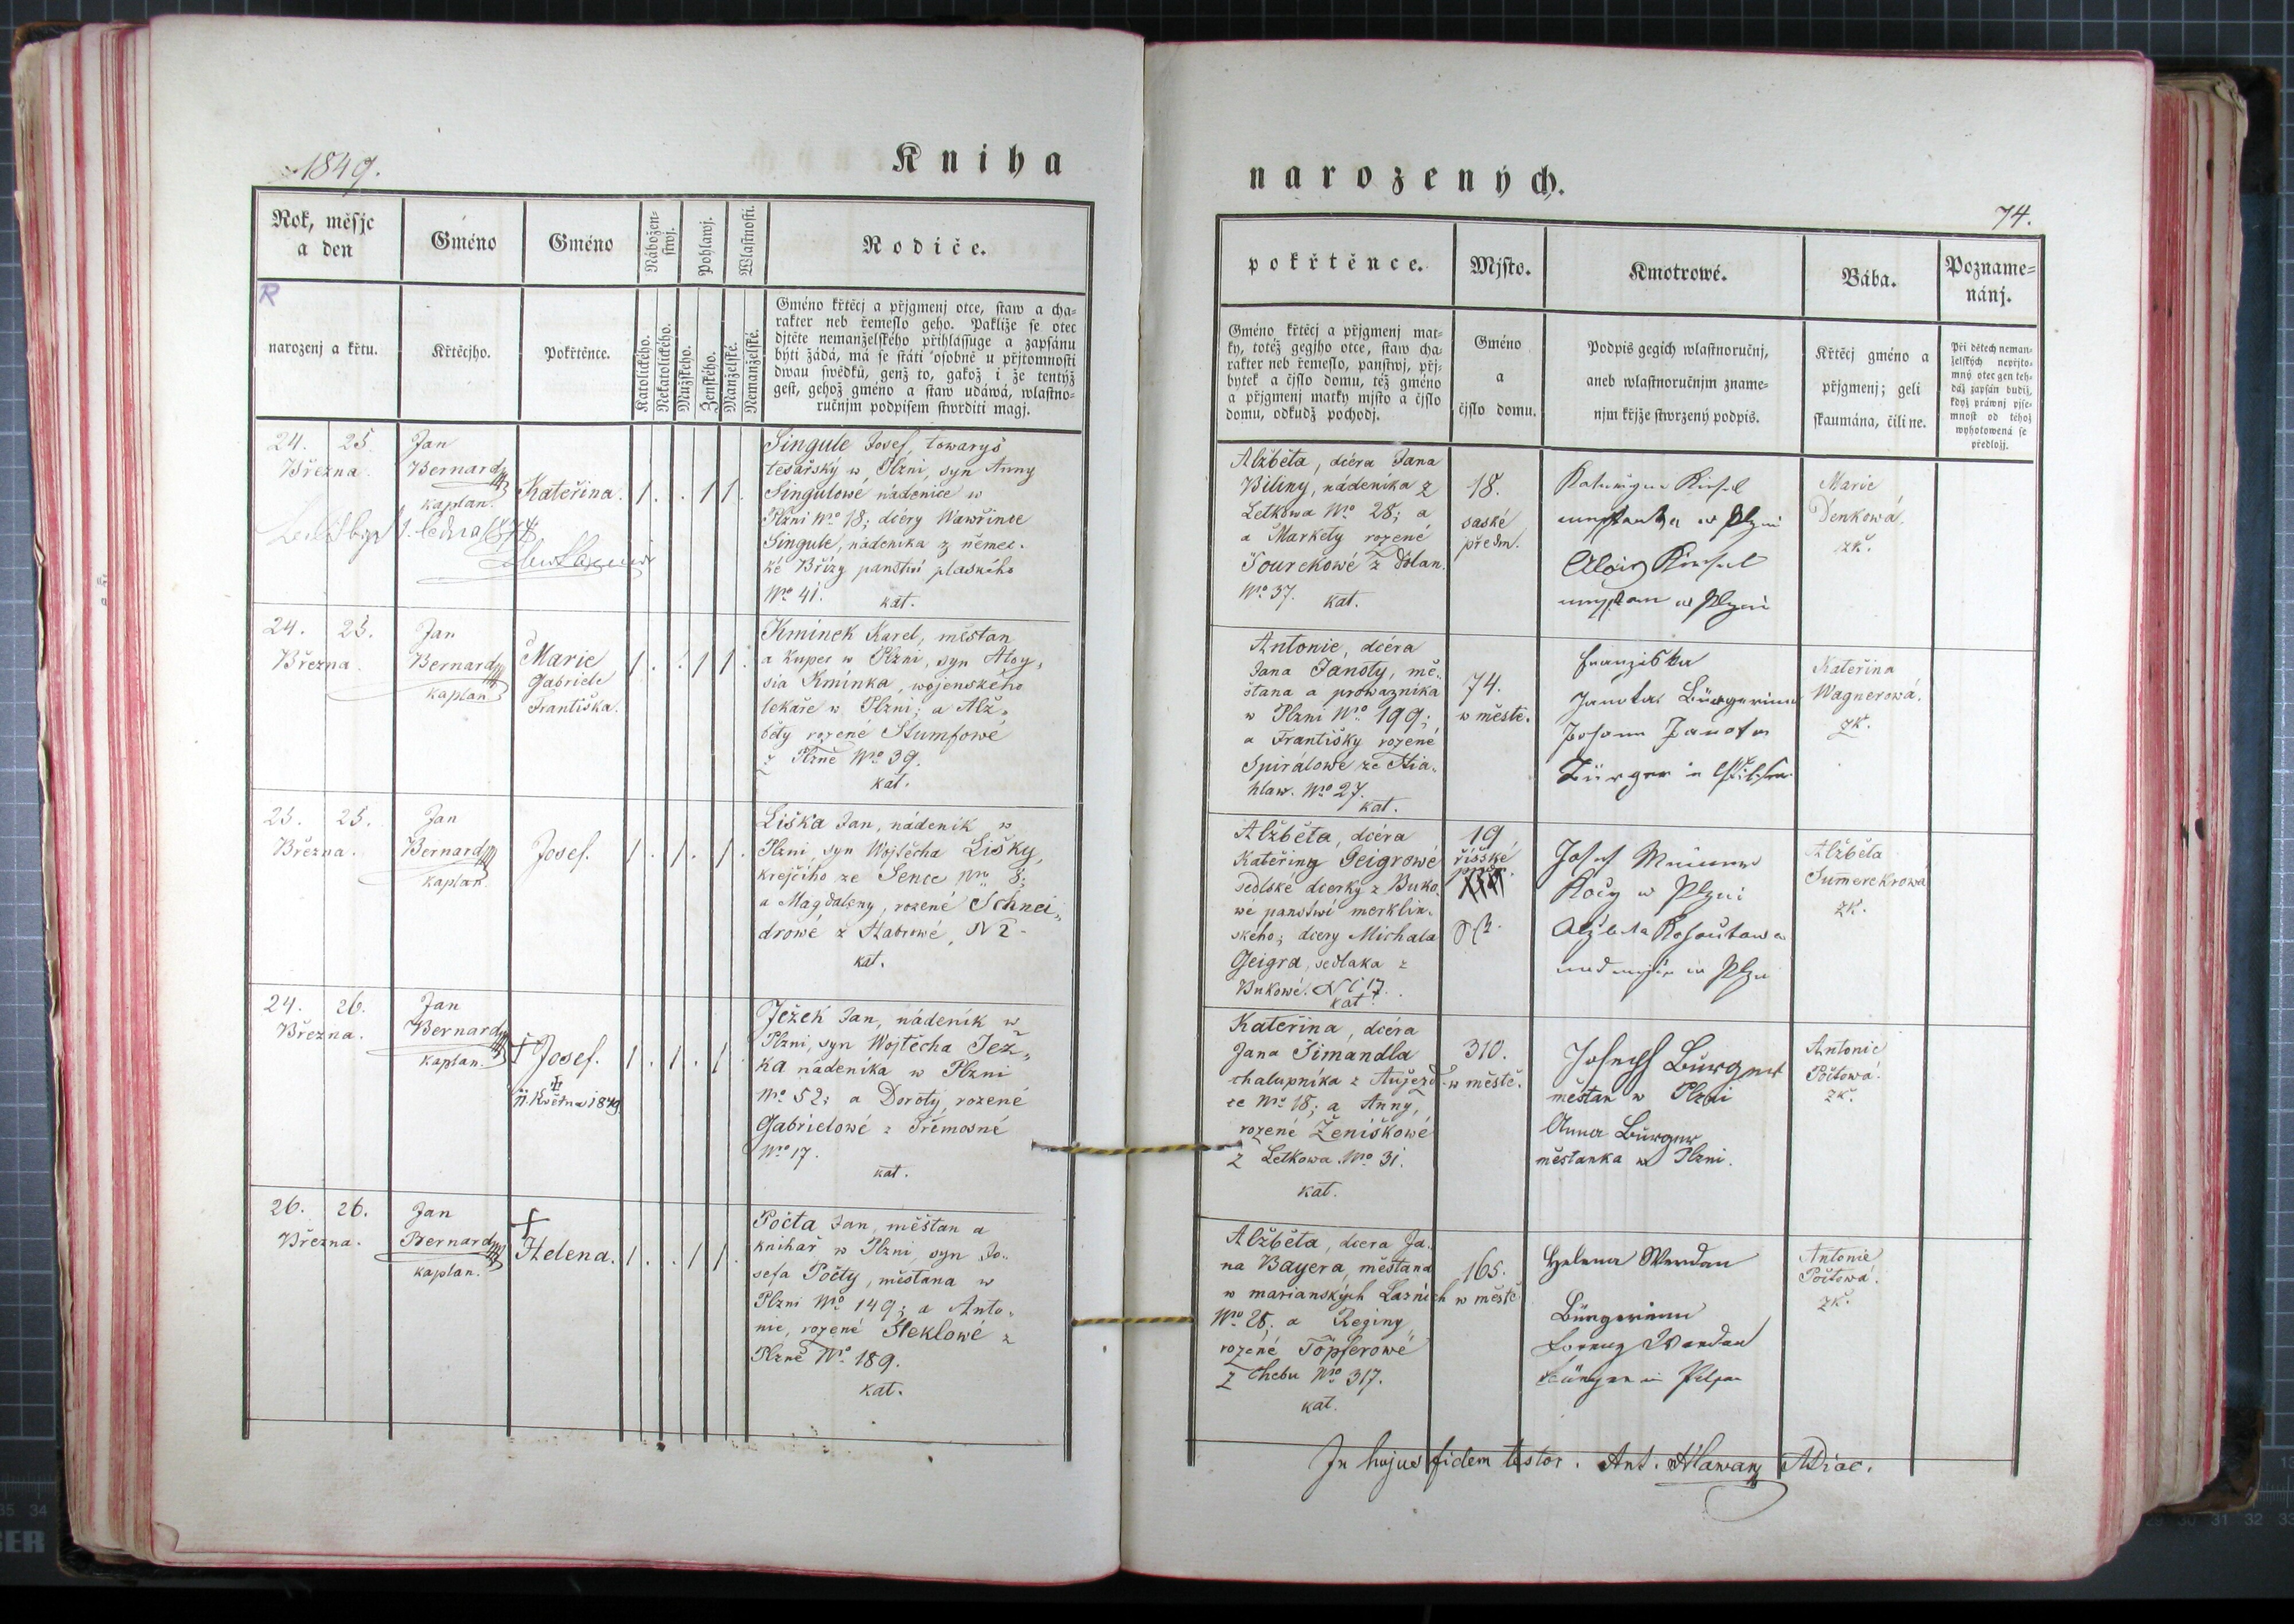 1849.
Kniha
narozených.
74.
Rok, měsjc
a den
Gméno
Gméno
Nábožen-
stwj.
Pohlawj.
Wlastnosti.
Rodiče.
R
narozenj a křtu.
Křtěcjho.
Pokřtěnce.
Katolického.
Nekatolického.
Mužského.
Ženského.
Manželské.
Nemanželské.
Gméno křtěcj a přjgmenj otce, staw a cha-
rakter neb řemeslo geho. Pakliže se otec
djtěte nemanželského přihlassuge a zapsánu
býti žádá, má se státi osobně u přjtomnosti
dwau swědků, genž to, gakož i že tentýž
gest, gehož gméno a staw udáwá, wlastno-
ručnjm podpisem stwrditi magj.
pokřtěnce.
Mjsto.
Kmotrowé.
Bába.
Pozname-
nánj.
Gméno křtěcj a přjgmenj mat-
ky, totéž gegjho otce, staw cha-
rakter neb řemeslo, panstwj, přj-
bytek a čjslo domu, též gméno
a přjgmenj matky mjsto a čjslo
domu, odkudž pochodj.
Gméno
a
čjslo domu.
Podpis gegich wlastnoručnj,
aneb wlastnoručnjm zname-
njm křjže stwrzený podpis.
Křtěcj gméno a
přjgmenj; geli
skaumána, čili ne.
Při dětech neman-
želských nepřjto-
mný otec gen teh-
dáž zapsán budiž,
když práwnj pjse-
mnost od téhož
wyhotowená se
předložj.
24. 25.
Března.
Jan
Bernard
kaplan.
Kateřina.
1. . 1 1.
Singule Josef, towaryš
tesařský w Plzni, syn Anny
Singulowé nádenice w
Plzni No 18; dcéry Wawřince
Singule, nádenika z němec-
ké Břízy panství plaského
No 41. kat.
Alžběta, dcéra Jana
Biliny, nádenika z
Letkowa No 28; a
a Markety rozené
Tourekowé z Dolan.
No 37. kat.
18.
saské
předm.
w Plzni
Alois
w Plzni
Marie
Denkowá.
zk.
24. 25.
Března.
Jan
Bernard
kaplan
Marie
Gabriele
Františka.
1. . 1 1.
Kminek Karel, měštan
a kupec w Plzni, syn Aloy-
sia Kminka, wojenského
lekaře w Plzni; a Alž-
běty rozené Stumfowé
z Plzně No 39.
kat.
Antonie, dcéra
Jana Janoty, mě-
štana a prowazníka
w Plzni No 199;
a Františky rozené
Spirálowé ze Stia-
hlaw. No 27.
kat.
74.
w městě.
Franziska
Janota Bürgerinn
Johann Janota
Bürger in Pilsen
Kateřina
Wagnerowá.
zk.
25. 25.
Března.
Jan
Bernard
kaplan.
Josef.
1. 1. 1.
Liška Jan, nádeník w
Plzni syn Wojtěcha Lišky,
krejčího ze Sence No 8;
a Magdaleny, rozené Schnei-
drowé z Habrowé, N 2.
kat.
Alžběta, dcéra
Kateřiny Geigrowé
sedlské dcerky z Buko-
wé panstwí merklin-
ského; dcery Michala
Geigra, sedlaka z
Bukowé. N 17.
kat.
19
říšské
předm.
Josef
Kočy w Plzni
Alžběta
Alžběta
Šumerekrowá
zk.
24. 26.
Března.
Jan
Bernard
kaplan.
† Josef.
†
11. Května 1849
1. 1. 1.
Ježek Jan, nádeník w
Plzni, syn Wojtěcha Jež-
ka nádeníka w Plzni
No 52; a Doroty rozené
Gabrielowé z Třemosné
No 17.
kat.
Kateřina, dcéra
Jana Šimandla
chalupníka z Aujezd-
ce No 18; a Anny,
rozené Ženiškowé
z Letkowa No 31.
kat.
310.
w městě.
Joseph Bürger
měštan w Plzni
Anna Bürger
měštanka w Plzni.
Antonie
Počtowá.
zk.
26. 26.
Března.
Jan
Bernard
kaplan.
†
Helena.
1. . 1 1.
Počta Jan, měštan a
knihař w Plzni, syn Jo-
sefa Počty, měštana w
Plzni No 149; a Anto-
nie, rozené Steklowé z
Plzně No 189.
kat.
Alžběta, dcera Ja-
na Bayera, měštana
w marianských Lazních
No 25; a Reginy
rozené Töpferowé
z Chebu No 317.
kat.
165.
w městě
Helena Werdan
Bürgerinn
Lorenz Werdan
Bürger in Pilsen
Antonie
Počtowá.
zk.
In hujus fidem testor. Ant. Hlawan ADiac.